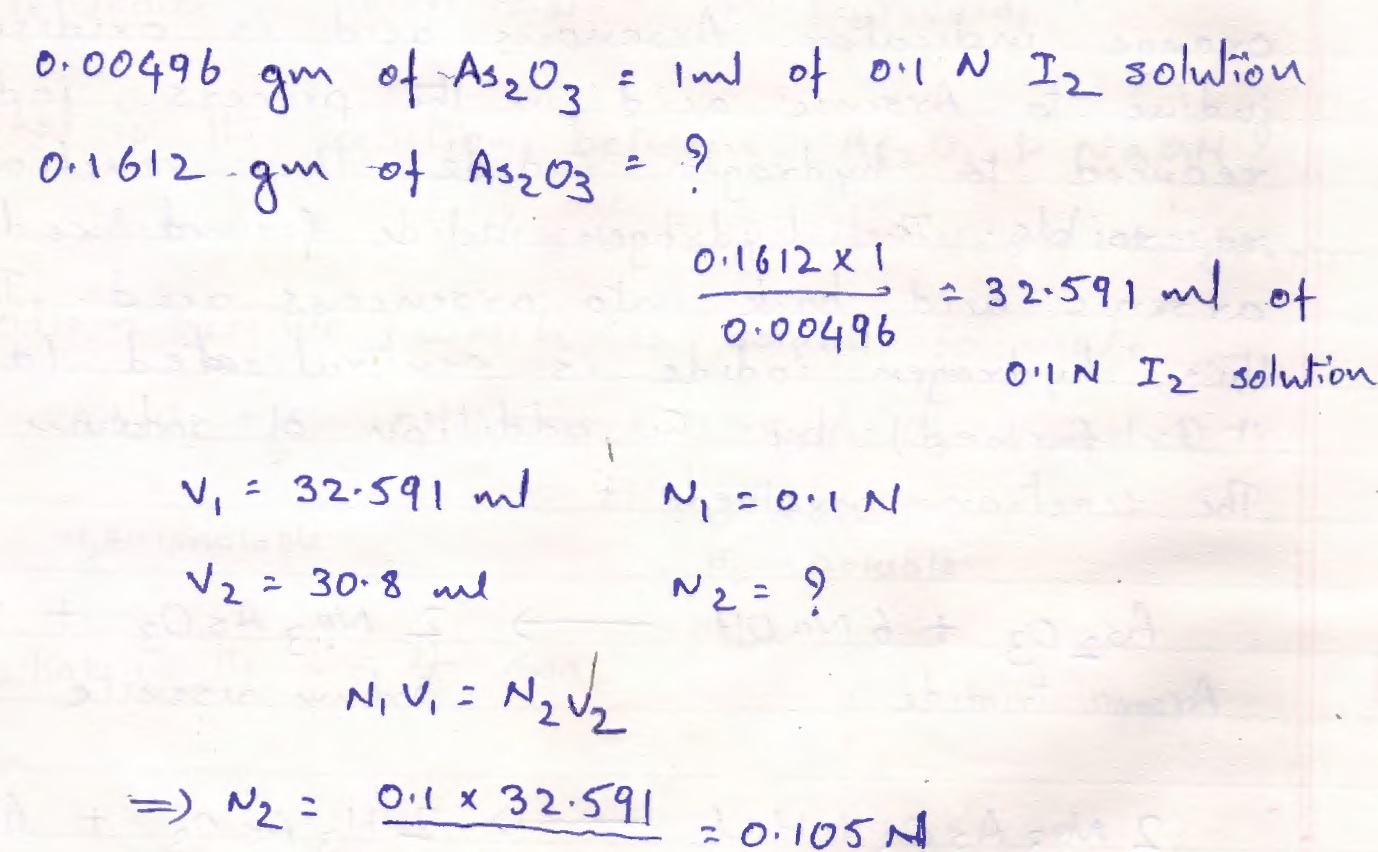 0.00496 gm of As2O3 = 1ml of 0.1 N I2 solution
0.1612 gm of As2O3 = ?
0.1612 x 1
0.00496
= 32.591 ml of
0.1 N I2 solution
V1 = 32.591 ml N1 = 0.1 N
V2 = 30.8 ml N2 = ?
N1 V1 = N2 V2
=> N2 = 0.1 x 32.591 = 0.105 N